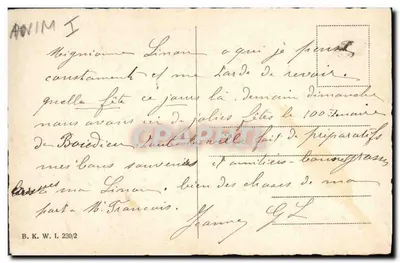 ANIM I
Mignionne Linon a qui je pense
constament et me tarde de revoir
quelle fête ce jours là, demain dimanche
nous avons ici de jolies fêtes le 100
du fait de préparatifs
mes bons souvenirs et amitiées
ma Linon, bien des choses de ma
part a Mr Francois.
Jeanne G L
CPARAMA
B. K. W. I. 220/2